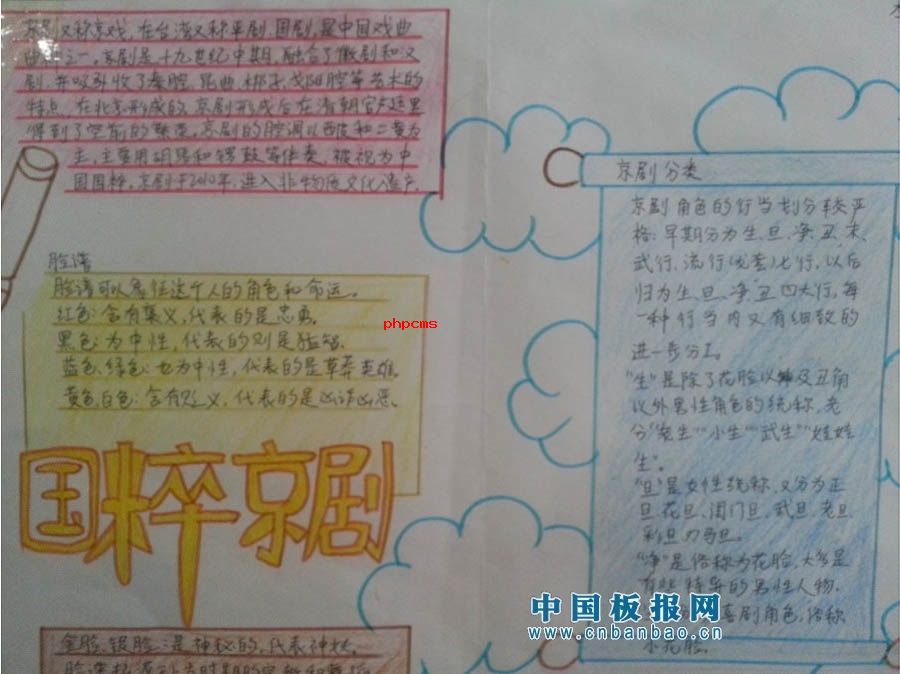 京剧又称京戏，在台湾又称平剧、国剧，是中国戏曲
曲种之一，京剧是十九世纪中期，融合了徽剧和汉
剧，并吸收了秦腔、昆曲、梆子、弋阳腔等艺术的
特点，在北京形成的，京剧形成后在清朝宫廷里
得到了空前的繁荣，京剧的腔调以西皮和二黄为
主，主要用胡琴和锣鼓等伴奏，被视为中
国国粹，京剧于2010年，进入非物质文化遗产，
脸谱
脸谱可以象征这个人的角色和命运。
红色：含有褒义，代表的是忠勇。
黑色：为中性，代表的则是猛智。
蓝色、绿色：也为中性，代表的是草莽英雄。
黄色、白色：含有贬义，代表的是凶诈凶恶。
phpcms
国粹京剧
金脸、银脸：是神秘的，代表神妖。
脸谱起源
京剧分类
京剧角色的行当划分较严
格：早期分为生、旦、净、丑、末、
武行、流行（龙套）七行，以后
归为生、旦、净、丑四大行，每
一种行当内又有细致的
进一步分工。
“生”是除了花脸以及丑角
以外男性角色的统称，老
分“老生”“小生”“武生”“娃娃
生”。
“旦”是女性统称，又分为正
旦、花旦、闺门旦、武旦、老旦
彩旦、刀马旦。
“净”是俗称为花脸，大多是
有些特异的男性人物.
喜剧角色，俗称
小花脸。
中国板报网
www.cnbanbao.cn